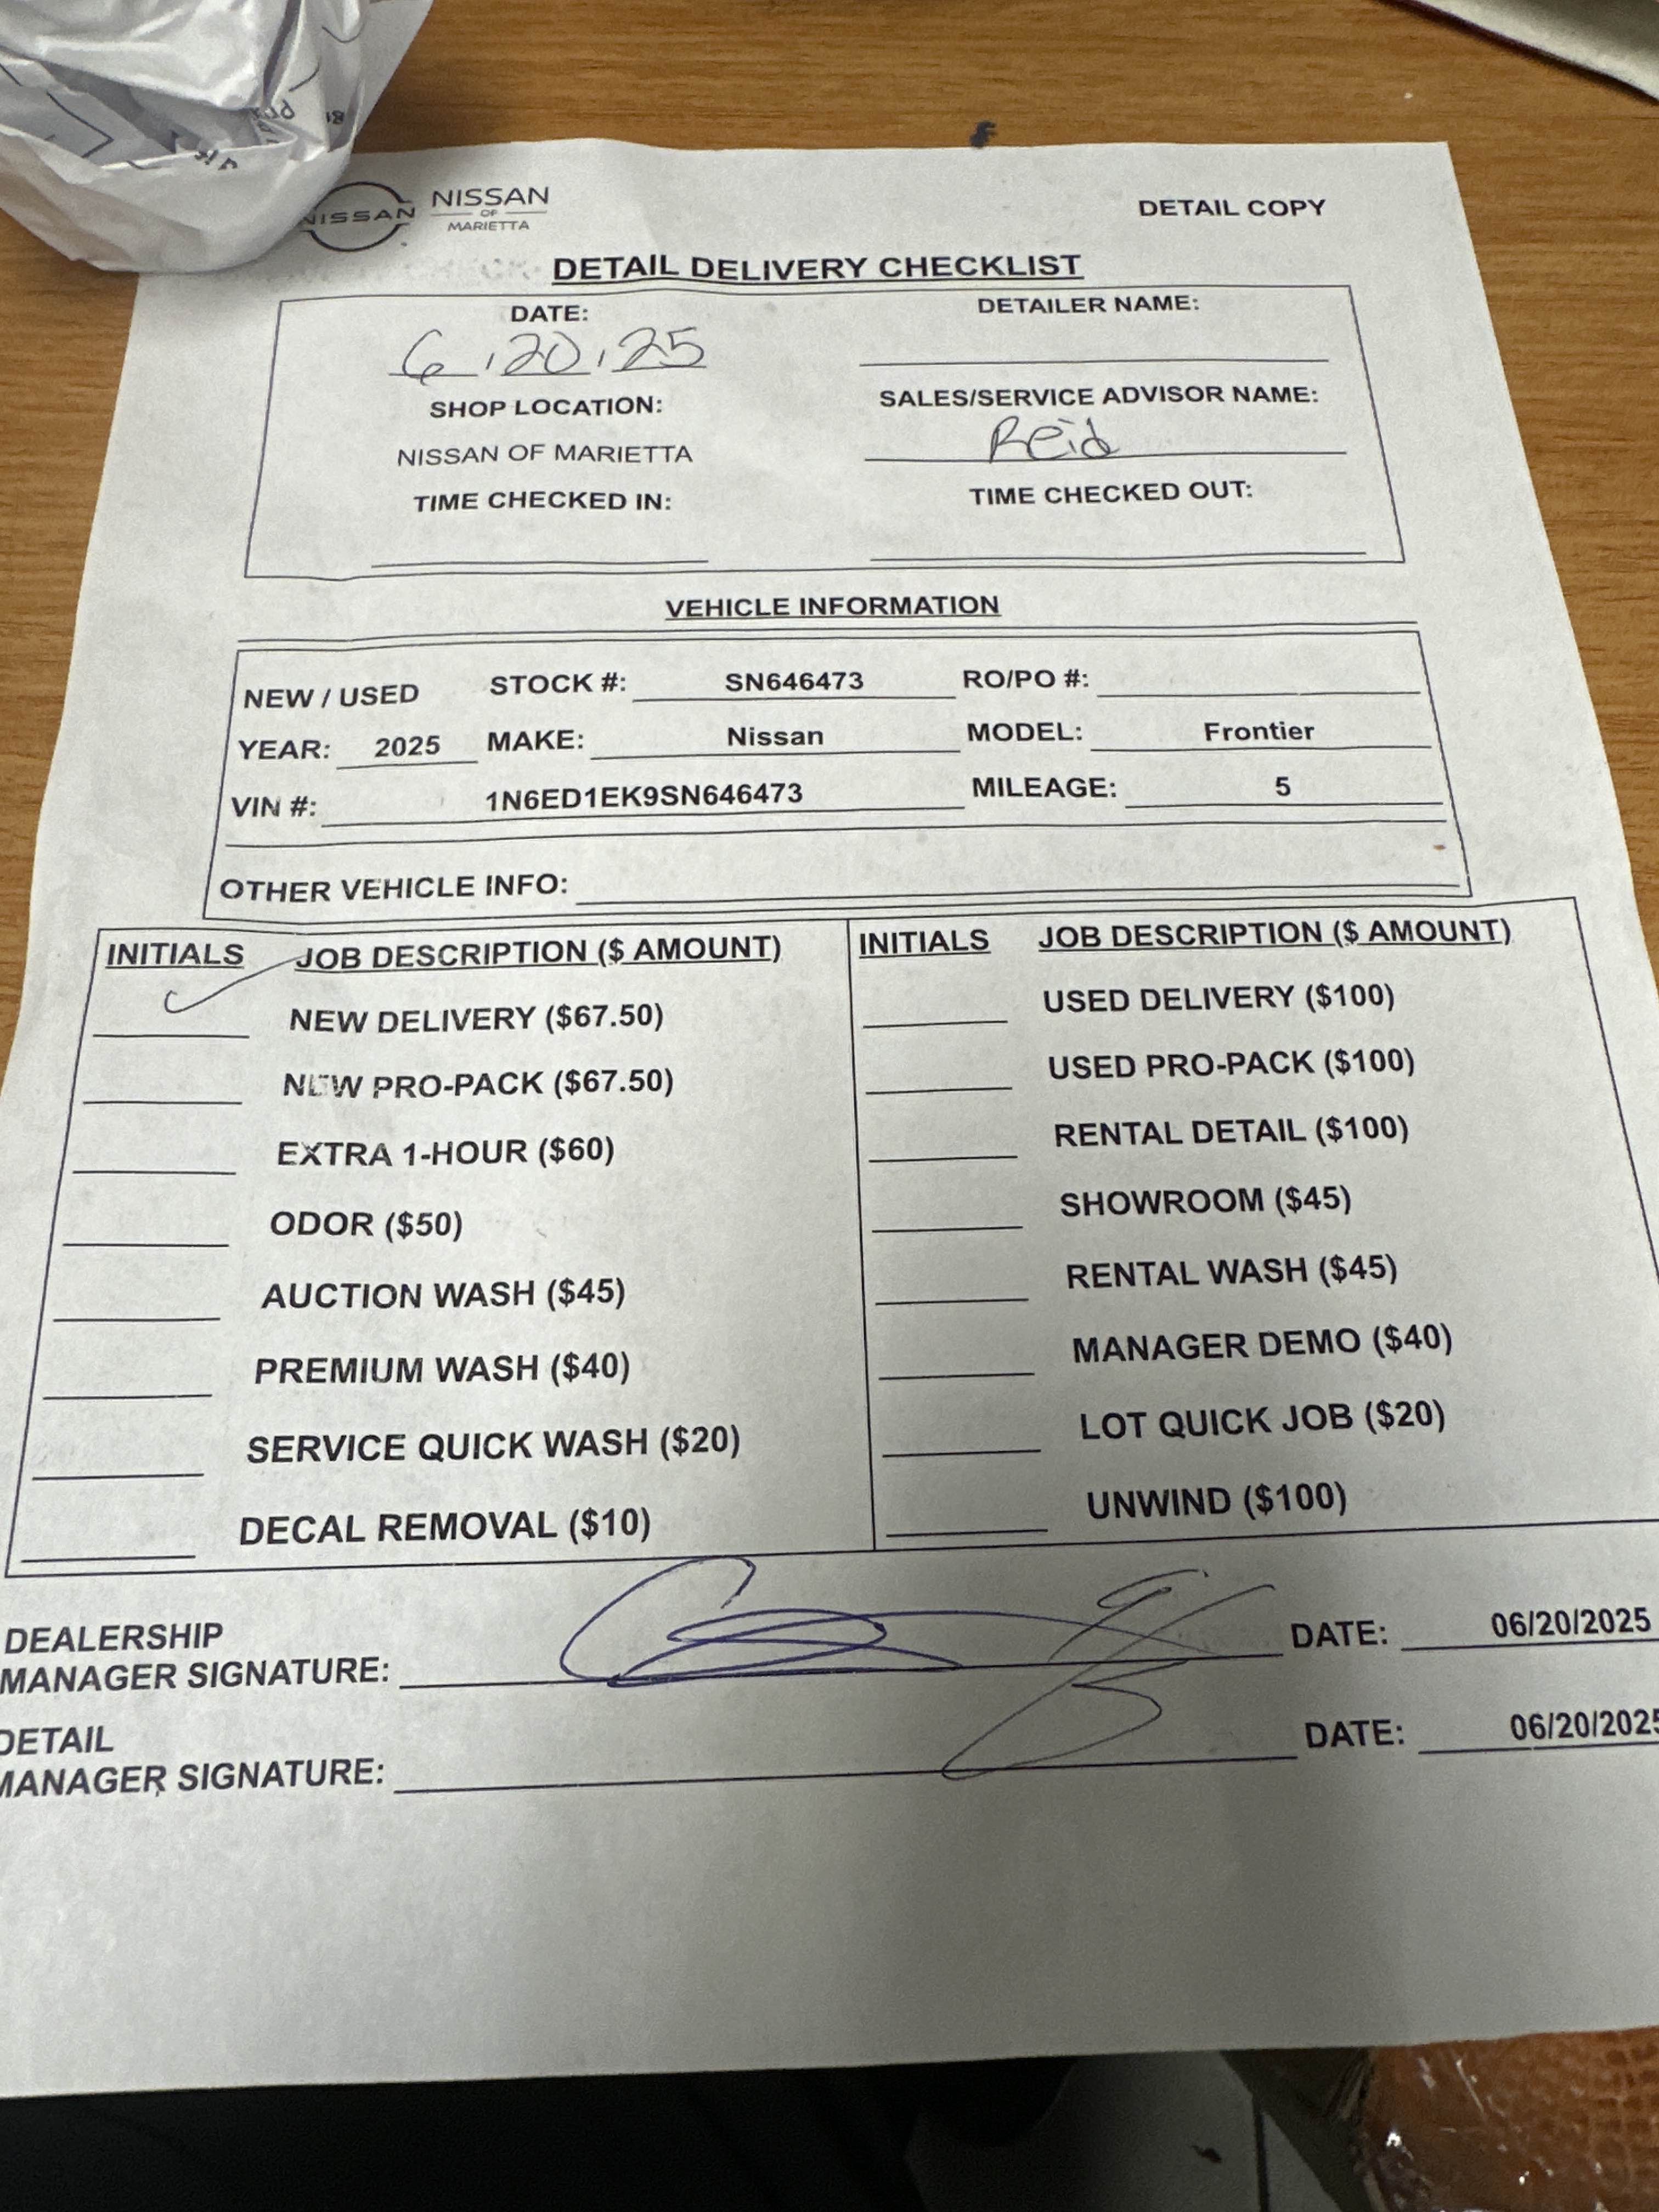 NISSAN
NISSAN
OF
MARIETTA
DETAIL COPY
DETAIL DELIVERY CHECKLIST
DATE:
6,20,25
DETAILER NAME:
SHOP LOCATION:
NISSAN OF MARIETTA
SALES/SERVICE ADVISOR NAME:
Reid
TIME CHECKED IN:
TIME CHECKED OUT:
VEHICLE INFORMATION
NEW / USED STOCK #: SN646473 RO/PO #:
YEAR: 2025 MAKE: Nissan MODEL: Frontier
VIN #: 1N6ED1EK9SN646473 MILEAGE: 5
OTHER VEHICLE INFO:
INITIALS JOB DESCRIPTION ($ AMOUNT)
NEW DELIVERY ($67.50)
NEW PRO-PACK ($67.50)
EXTRA 1-HOUR ($60)
ODOR ($50)
AUCTION WASH ($45)
PREMIUM WASH ($40)
SERVICE QUICK WASH ($20)
DECAL REMOVAL ($10)
INITIALS JOB DESCRIPTION ($ AMOUNT)
USED DELIVERY ($100)
USED PRO-PACK ($100)
RENTAL DETAIL ($100)
SHOWROOM ($45)
RENTAL WASH ($45)
MANAGER DEMO ($40)
LOT QUICK JOB ($20)
UNWIND ($100)
DEALERSHIP
MANAGER SIGNATURE: DATE: 06/20/2025
DETAIL
MANAGER SIGNATURE: DATE: 06/20/2025